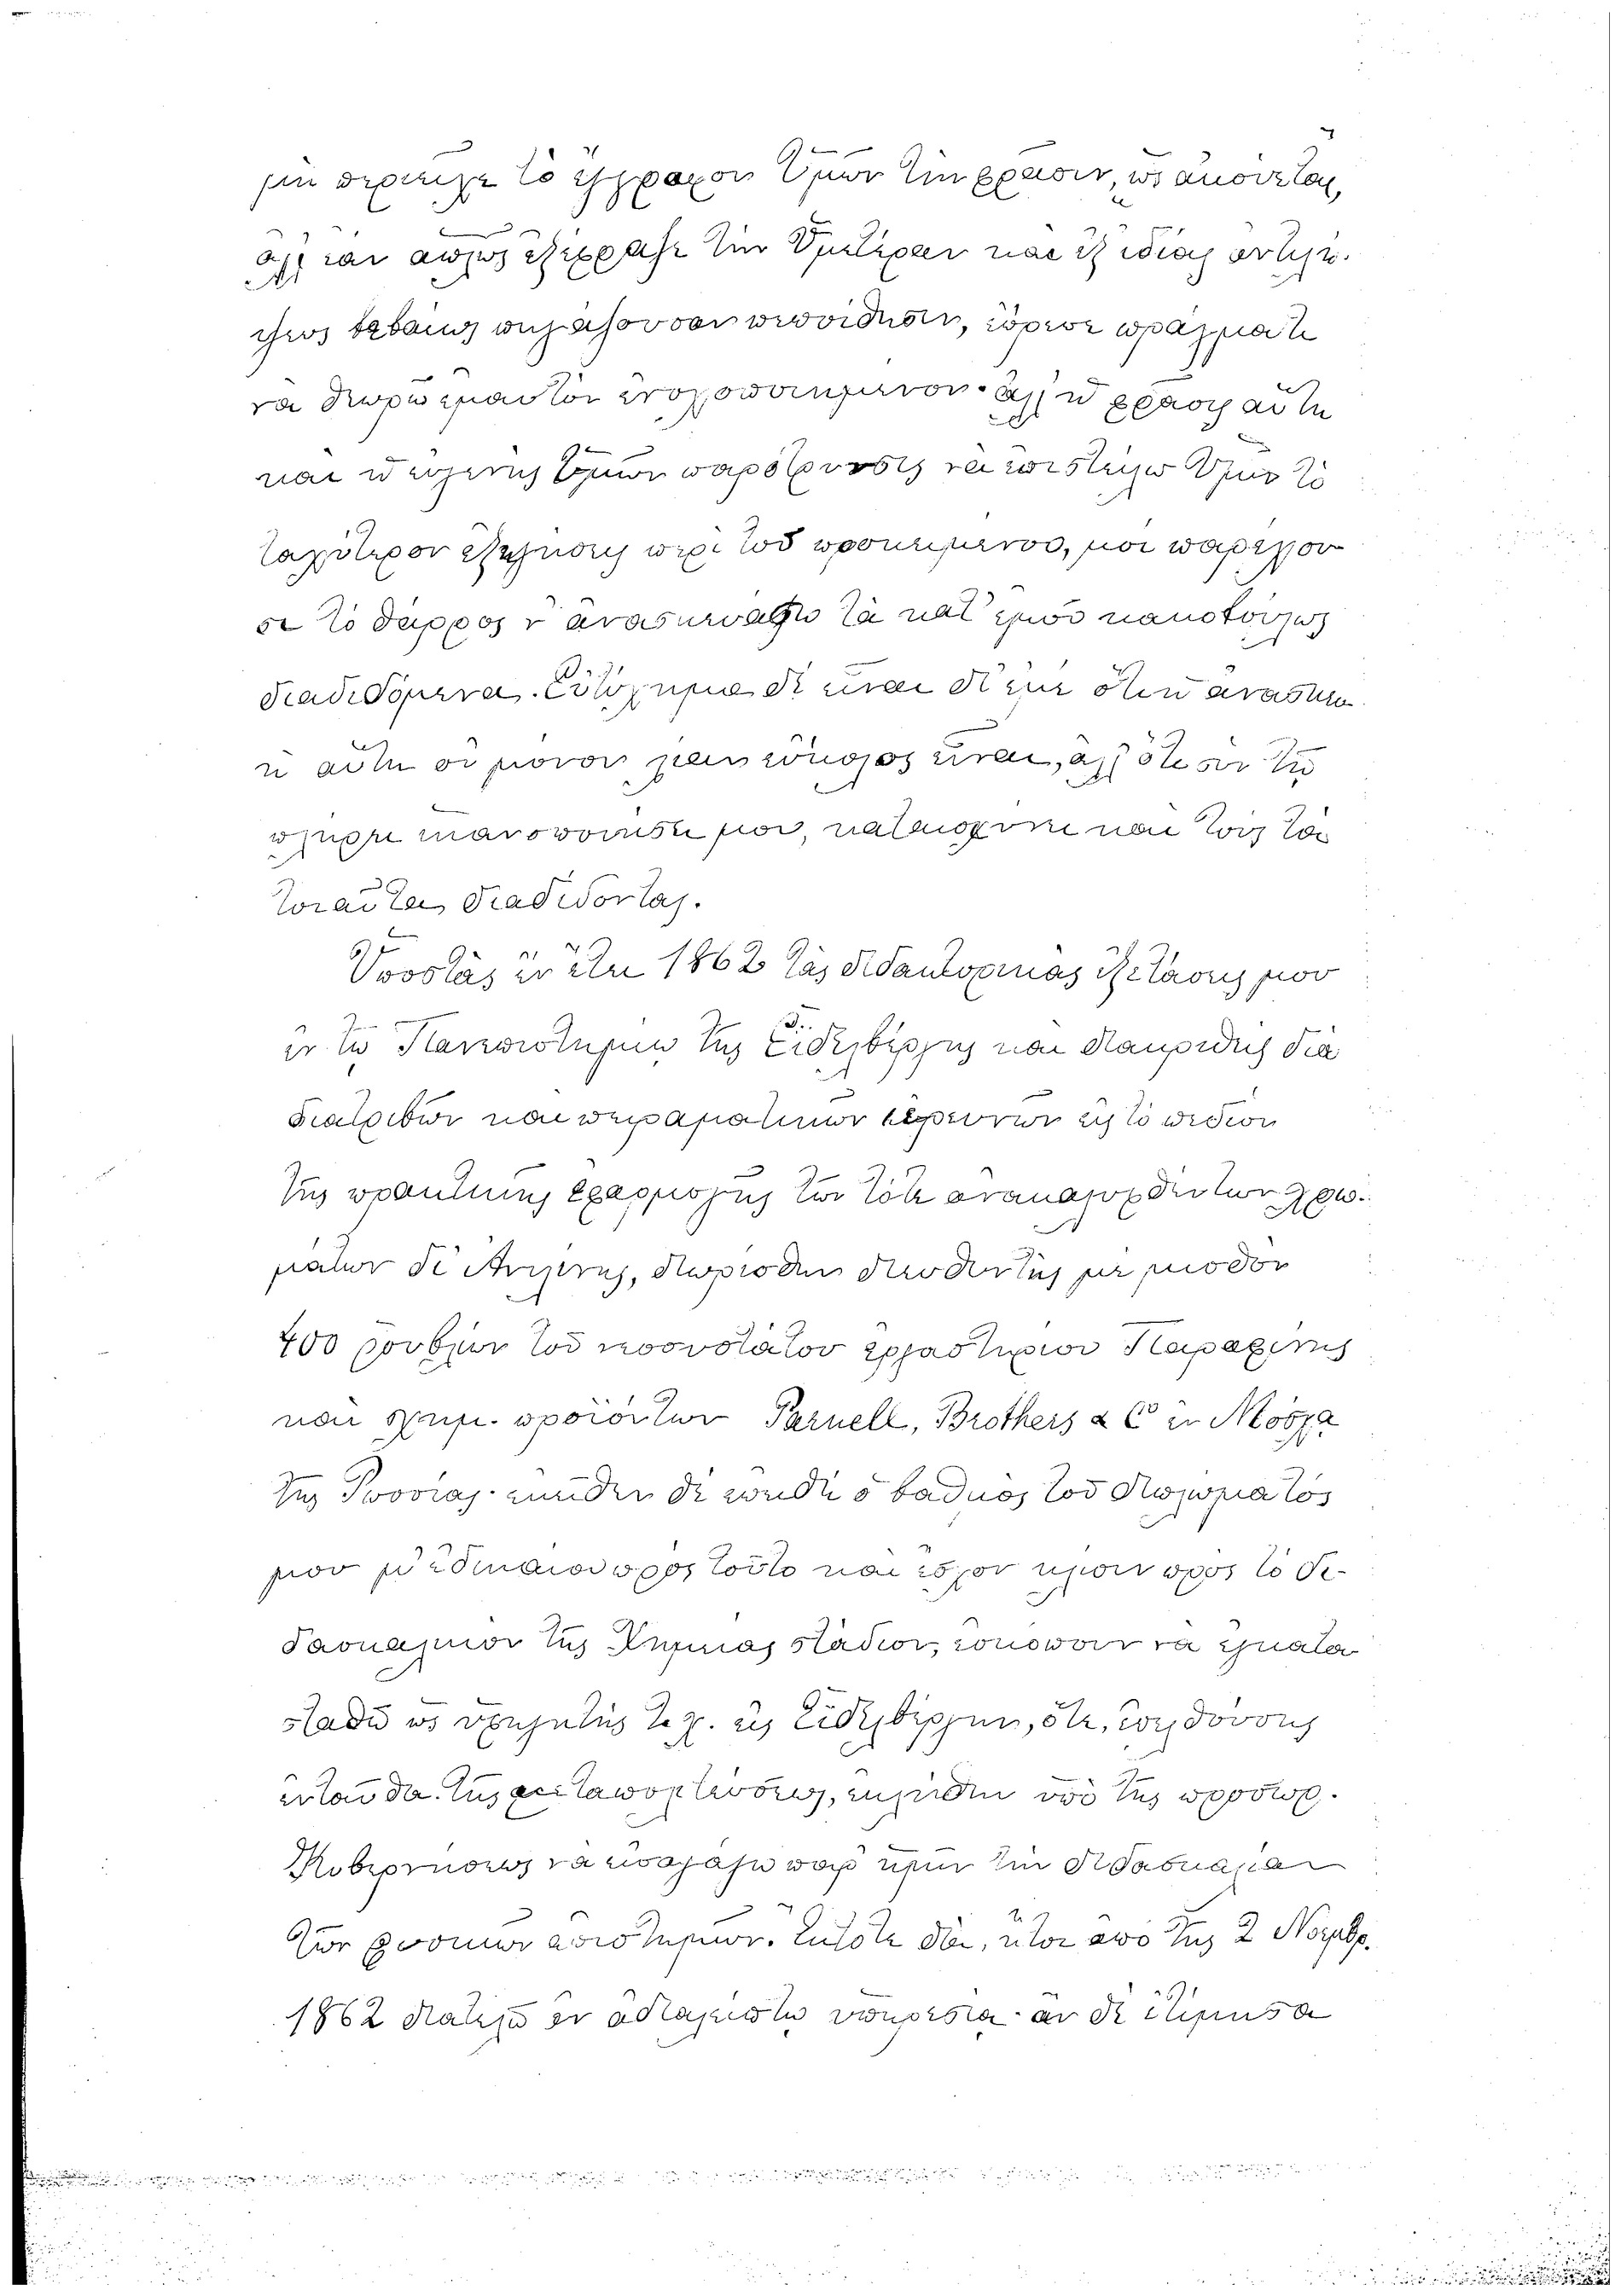 μὴ περιεῖχε τὸ ἔγγραφον Ὑμῶν τὴν φράσιν, ὡς ἀκούεται,
ἀλλ' ἐὰν ἁπλῶς ἐξέφραζε τὴν Ὑμετέραν καὶ ἐξ ἰδίας ἀντιλή-
ψεως βεβαίως πηγάζουσαν πεποίθησιν, εὕρισκε πράγματι
νὰ θεωρῶ ἐμαυτὸν ἐνοχοποιημένον· ἀλλ' ἡ φράσις αὕτη
καὶ ἡ εὐγενὴς Ὑμῶν παρότρυνσις νὰ ἀποστείλω Ὑμῖν τὸ
ταχύτερον ἐξήγησιν περὶ τοῦ προκειμένου, μοὶ παρέχου-
σι τὸ θάρρος ν' ἀνασκευάσω τὰ κατ' ἐμοῦ κακοβούλως
διαδιδόμενα. Εὐτύχημα δὲ εἶναι δι' ἐμὲ ὅτι ἡ ἀνασκευ-
ὴ αὕτη οὐ μόνον μοὶ εὔκολος εἶναι, ἀλλ' ὅτι σὺν τῇ
πλήρει ἱκανοποιήσει μου, καταισχύνει καὶ τοὺς τὰ
τοιαῦτα διαδίδοντας.
Ὑποστὰς ἐν ἔτει 1862 τὰς διδακτορικὰς ἐξετάσεις μου
ἐν τῷ Πανεπιστημίῳ τῆς Εἰδελβέργης καὶ διακριθεὶς διὰ
διατριβῶν καὶ πειραματικῶν ἐρευνῶν εἰς τὸ πεδίον
τῆς πρακτικῆς ἐφαρμογῆς τῶν τότε ἀνακαλυφθέντων χρω-
μάτων δι' Ἀνιλίνης, διωρίσθην διευθυντὴς μὲ μισθὸν
400 ρουβλίων τοῦ πλουσιωτάτου ἐργαστηρίου Παραφίνης
καὶ χημ. προϊόντων Parnell, Brothers & Cº ἐν Μόσχᾳ
τῆς Ρωσσίας· ἐκλήθην δὲ ἐπειδὴ ὁ βαθμὸς τοῦ διπλώματός
μου μ' ἐδικαίου πρὸς τοῦτο καὶ εἶχον κλίσιν πρὸς τὸ δι-
δασκαλικὸν τῆς Χημείας στάδιον, ἐσκόπουν νὰ ἐγκατα-
σταθῶ ὡς ὑφηγητὴς τ. χ. εἰς Εἰδελβέργην, ὅτε, ἐπελθούσης
ἐνταῦθα τῆς μεταπολιτεύσεως, ἐκλήθην ὑπὸ τῆς προσωρ.
Κυβερνήσεως νὰ ἀναλάβω παρ' ἡμῖν τὴν διδασκαλίαν
τῶν φυσικῶν ἐπιστημῶν. Ἔκτοτε δέ, ἤτοι ἀπὸ τῆς 2 Νοεμβρ.
1862 διατελῶ ἐν ἀδιαλείπτῳ ὑπηρεσίᾳ· ἂν δὲ ἐτίμησα